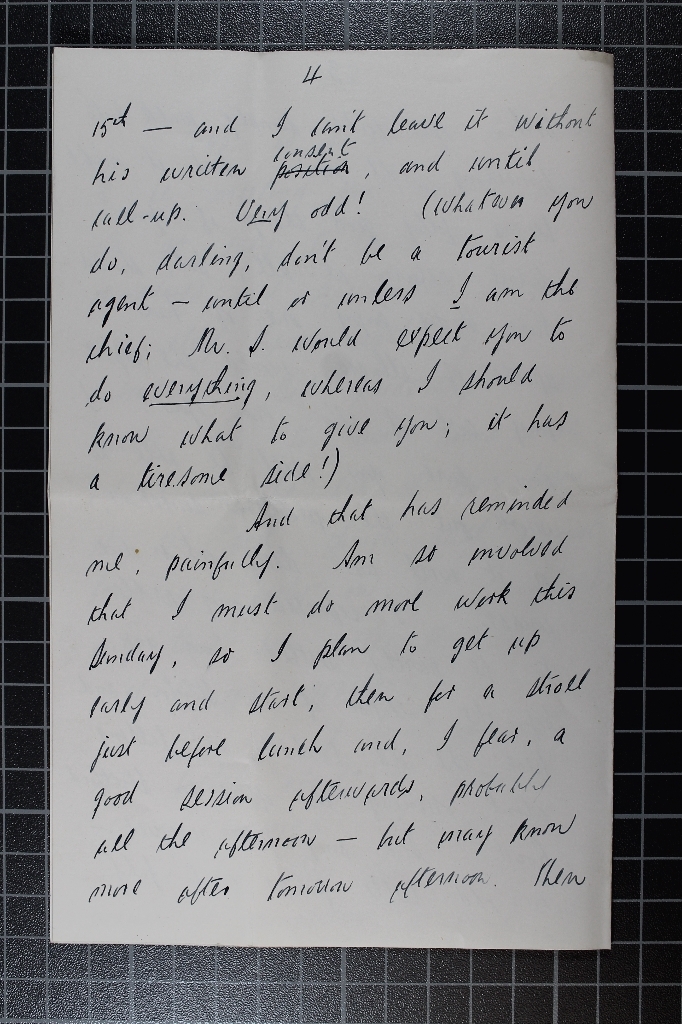 4
15th — and I can't leave it without
his written position consent, and until
call-up. Very odd! (Whatever you
do, darling, don't be a tourist
agent — until or unless I am the
chief; Mr. S. would expect you to
do everything, whereas I should
know what to give you; it has
a tiresome side!)
And that has reminded
me, painfully. Am so involved
that I must do more work this
Sunday, so I plan to get up
early and start, then for a stroll
just before lunch and, I fear, a
good session afterwards, probably
all the afternoon — but may know
more after tomorrow afternoon. Then